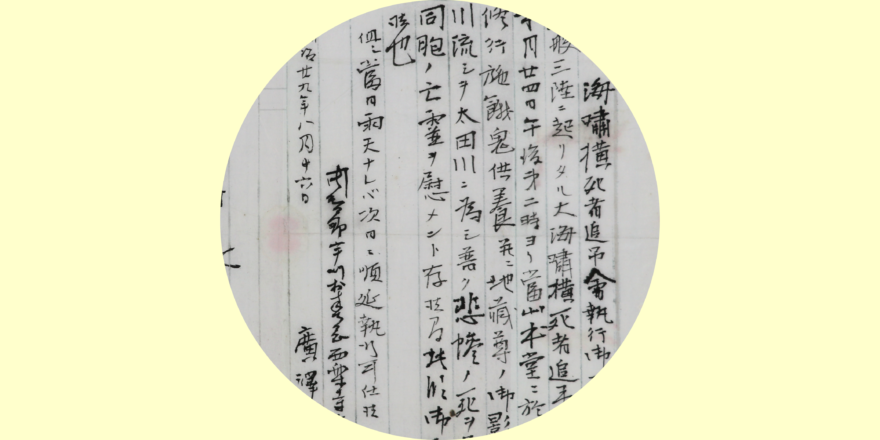 海嘯横死者追吊會執行御
般三陸ニ起リタル大海嘯横死者追
月廿四日午後第二時ヨリ當山本堂ニ於
修行施餓鬼供養并ニ地蔵尊ノ御影
川流シヲ太田川ニ為シ善ク悲惨ノ死ヲ
同胞ノ亡霊ヲ慰メント存候間 御
候也
但シ當日雨天ナレバ次日ニ順延執行可仕候
西
治廿九年八月十六日
廣澤